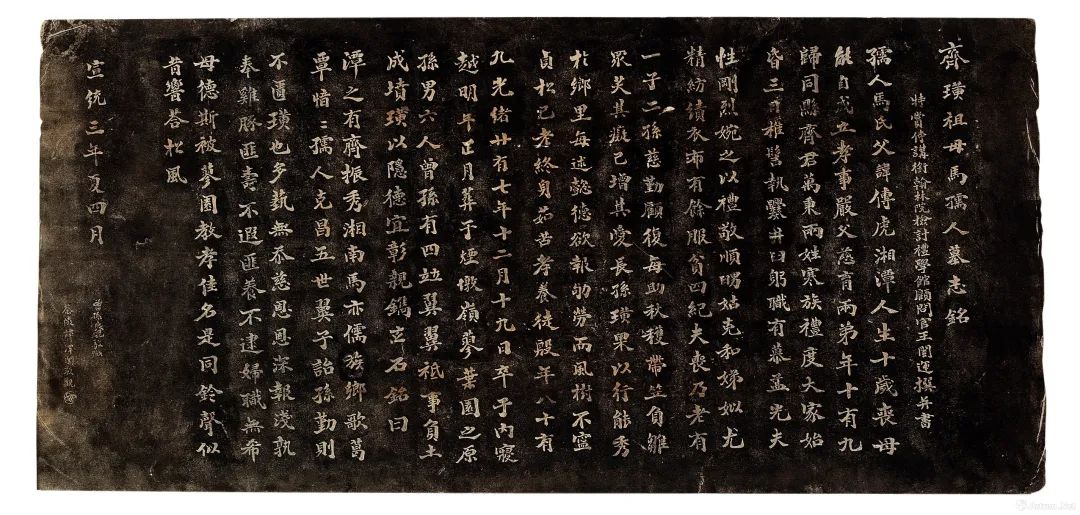 齊璜祖母馬孺人墓志銘
特賞侍講銜翰林院檢討禮學館顧問官王闓運撰并書
孺人馬氏父諱傳虎湘潭人生十歲喪母
能自成立孝事嚴父慈育兩弟年十有九
歸同縣齊君萬秉兩姓寒族禮度大家始
容三日椎髻執爨井臼躬職有慕孟光夫
性剛烈婉之以禮敬順舅姑克和娣姒尤
精紡績衣布有餘服貧四紀夫喪乃老有
一子二孫慈勤顧復每助秋穫帶笠負雛
眾笑其癡已增其愛長孫璜果以行能秀
於鄉里每述懿德欲報劬勞而風樹不寧
貞松已老終身茹苦孝養徒殷年八十有
九光緒廿有七年十二月十九日卒于內寢
越明年正月葬于煙墩嶺蓼葉園之原
孫男六人曾孫有四竝翼翼祗事負土
成墳璜以隱德宜彰親鐫玄石銘曰
潭之有齊振秀湘南馬亦儒族鄉歌葛
覃愔愔孺人克昌五世翼子詒孫勤則
不匱璜也多藝無忝慈恩恩深報淺孰
奉雞豚匪壽不遐匪養不逮婦職無希
母德斯被蓼園教孝佳名是同鈴聲似
昔響答松風
宣統三年夏四月